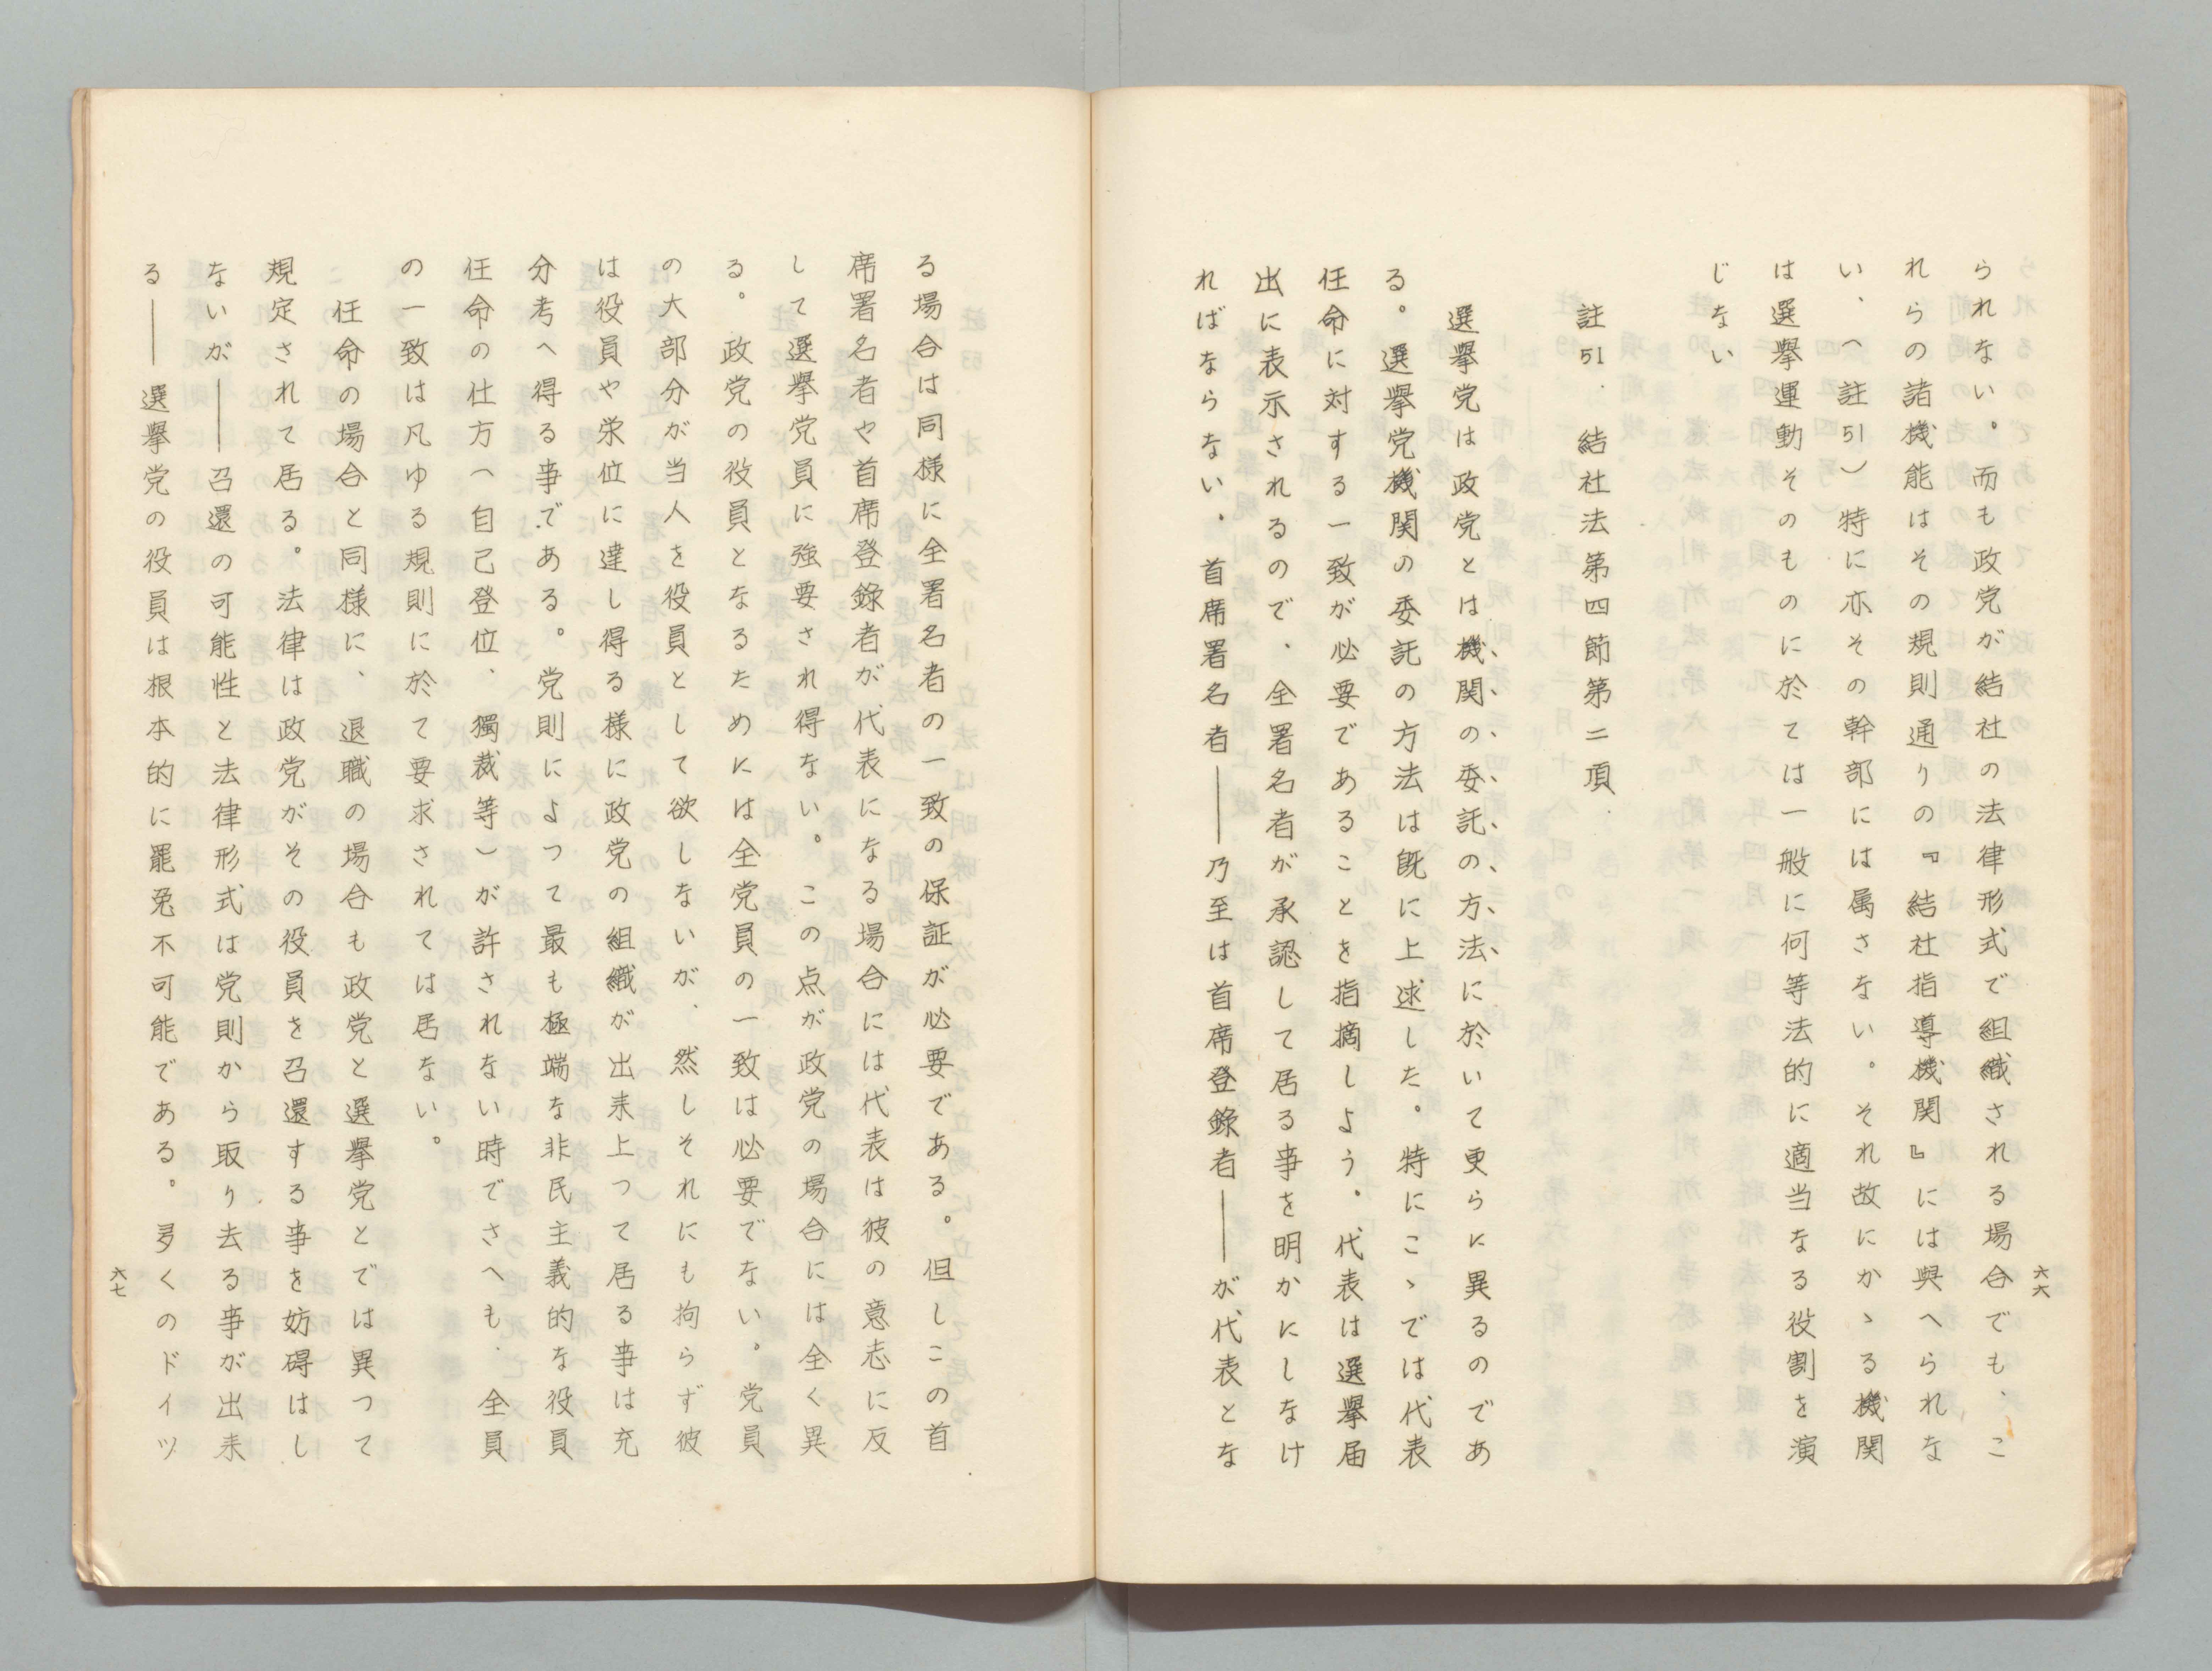 られない。而も政党が結社の法律形式で組織される場合でも、こ
れらの諸機能はその規則通りの『結社指導機関』には與へられな
い、（註51）特に亦その幹部には属さない。それ故にかゝる機関
は選挙運動そのものに於ては一般に何等法的に適当なる役割を演
じない
註51．結社法第四節第二項．
選挙党は政党とは機関の委託の方法に於いて更らに異るのであ
る。選挙党機関の委託の方法は既に上述した。特にこゝでは代表
任命に対する一致が必要であることを指摘しよう。代表は選挙届
出に表示されるので、全署名者が承認して居る事を明かにしなけ
ればならない．首席署名者――乃至は首席登録者――が代表とな
六六
る場合は同様に全署名者の一致の保証が必要である。但しこの首
席署名者や首席登録者が代表になる場合には代表は彼の意志に反
して選挙党員に強要され得ない。この点が政党の場合には全く異
る。政党の役員となるためには全党員の一致は必要でない。党員
の大部分が当人を役員として欲しないが、然しそれにも拘らず彼
は役員や栄位に達し得る様に政党の組織が出来上つて居る事は充
分考へ得る事である。党則によつて最も極端な非民主義的な役員
任命の仕方（自己登位、獨裁等）が許されない時でさへも．全員
の一致は凡ゆる規則に於て要求されては居ない。
任命の場合と同様に、退職の場合も政党と選挙党とでは異つて
規定されて居る。法律は政党がその役員を召還する事を妨碍はし
ないが――召還の可能性と法律形式は党則から取り去る事が出来
る――選挙党の役員は根本的に罷免不可能である。多くのドイツ
六七